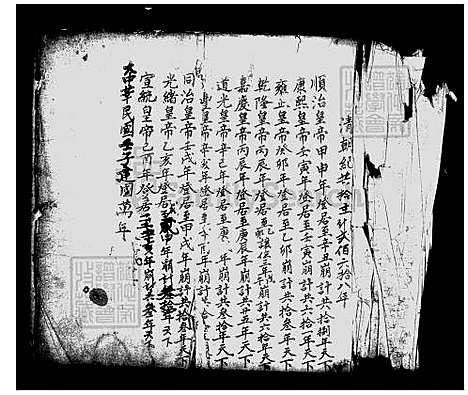 清朝紀共拾主計貳佰六拾八年
順治皇帝甲申年登居至辛丑崩計共拾捌年天下
康熙皇帝壬寅年登居至壬寅崩計共六拾一年天下
雍正皇帝癸卯年登居至乙卯崩計共拾叁年天下
乾隆皇帝丙辰年登居至乙卯讓位三年崩計共六拾年天下
嘉慶皇帝丙辰年登居至庚辰年崩計共廿五年天下
道光皇帝辛巳年登居至庚 年崩計共叁拾年天下
皇帝辛亥年登居至 酉年崩計
同治皇帝壬戌年登居至甲戌年崩計共拾叁年天下
光緒皇帝乙亥年登居至 申年崩計 年天下
宣統皇帝己酉年登居 亥年崩計共叁年天下
大中華民國壬子建國萬年